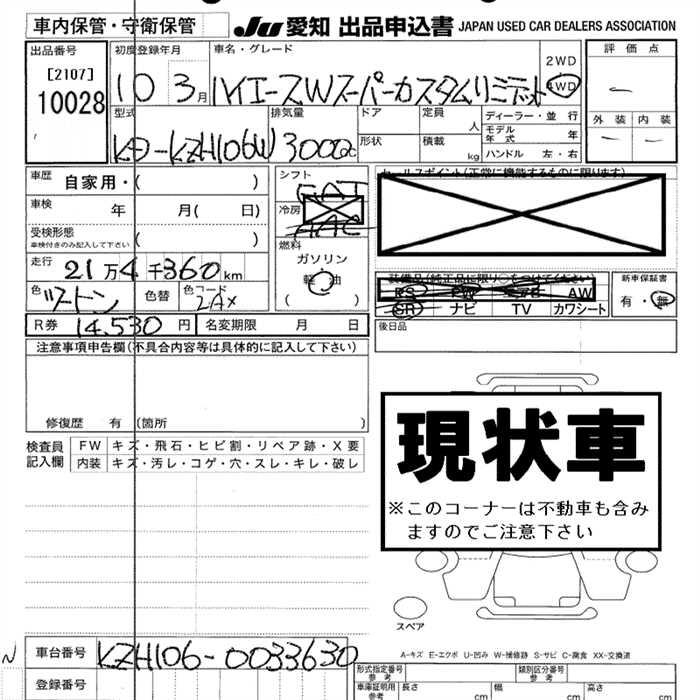 車内保管・守衛保管
JU 愛知 出品申込書 JAPAN USED CAR DEALERS ASSOCIATION
出品番号
[2107]
10028
初度登録年月
10 3月
車名・グレード
ハイエースWスーパーカスタムリミテッド
2WD
4WD
評価点
外装 内装
型式
KD-KZH106W
排気量
3000cc
ドア
形状
定員
人
積載
kg
ディーラー・並行
モデル年式 年
ハンドル 左・右
車歴 自家用・( )
車検 年 月( 日)
受検形態
車検付きのみ記入して下さい ( )
走行 21万4千360km
色 ツートン 色替 色コード 2AX
R券 14.530円 名変期限 月 日
シフト
FAT
冷房
AAC
燃料
ガソリン
軽油
( )
セールスポイント(正常に機能するものに限ります)
装備品(純正品に限り○をつけてください)
PS PW エアB AW
SR ナビ TV カワシート
新車保証書
有・無
後日品
注意事項申告欄(不具合内容等は具体的に記入して下さい)
修復歴 有(箇所 )
検査員記入欄
FW キズ・飛石・ヒビ割・リペア跡・X要
内装 キズ・汚レ・コゲ・穴・スレ・キレ・破レ
現状車
※このコーナーは不動車も含み
ますのでご注意下さい
スペア
A-キズ E-エクボ U-凹み W-補修跡 S-サビ C-腐食 XX-交換済
N
車台番号 KZH106-0033630
登録番号
形式指定番号 参考
類別区分番号 参考
車庫証明用 参考 長さ cm 幅 cm 高さ cm